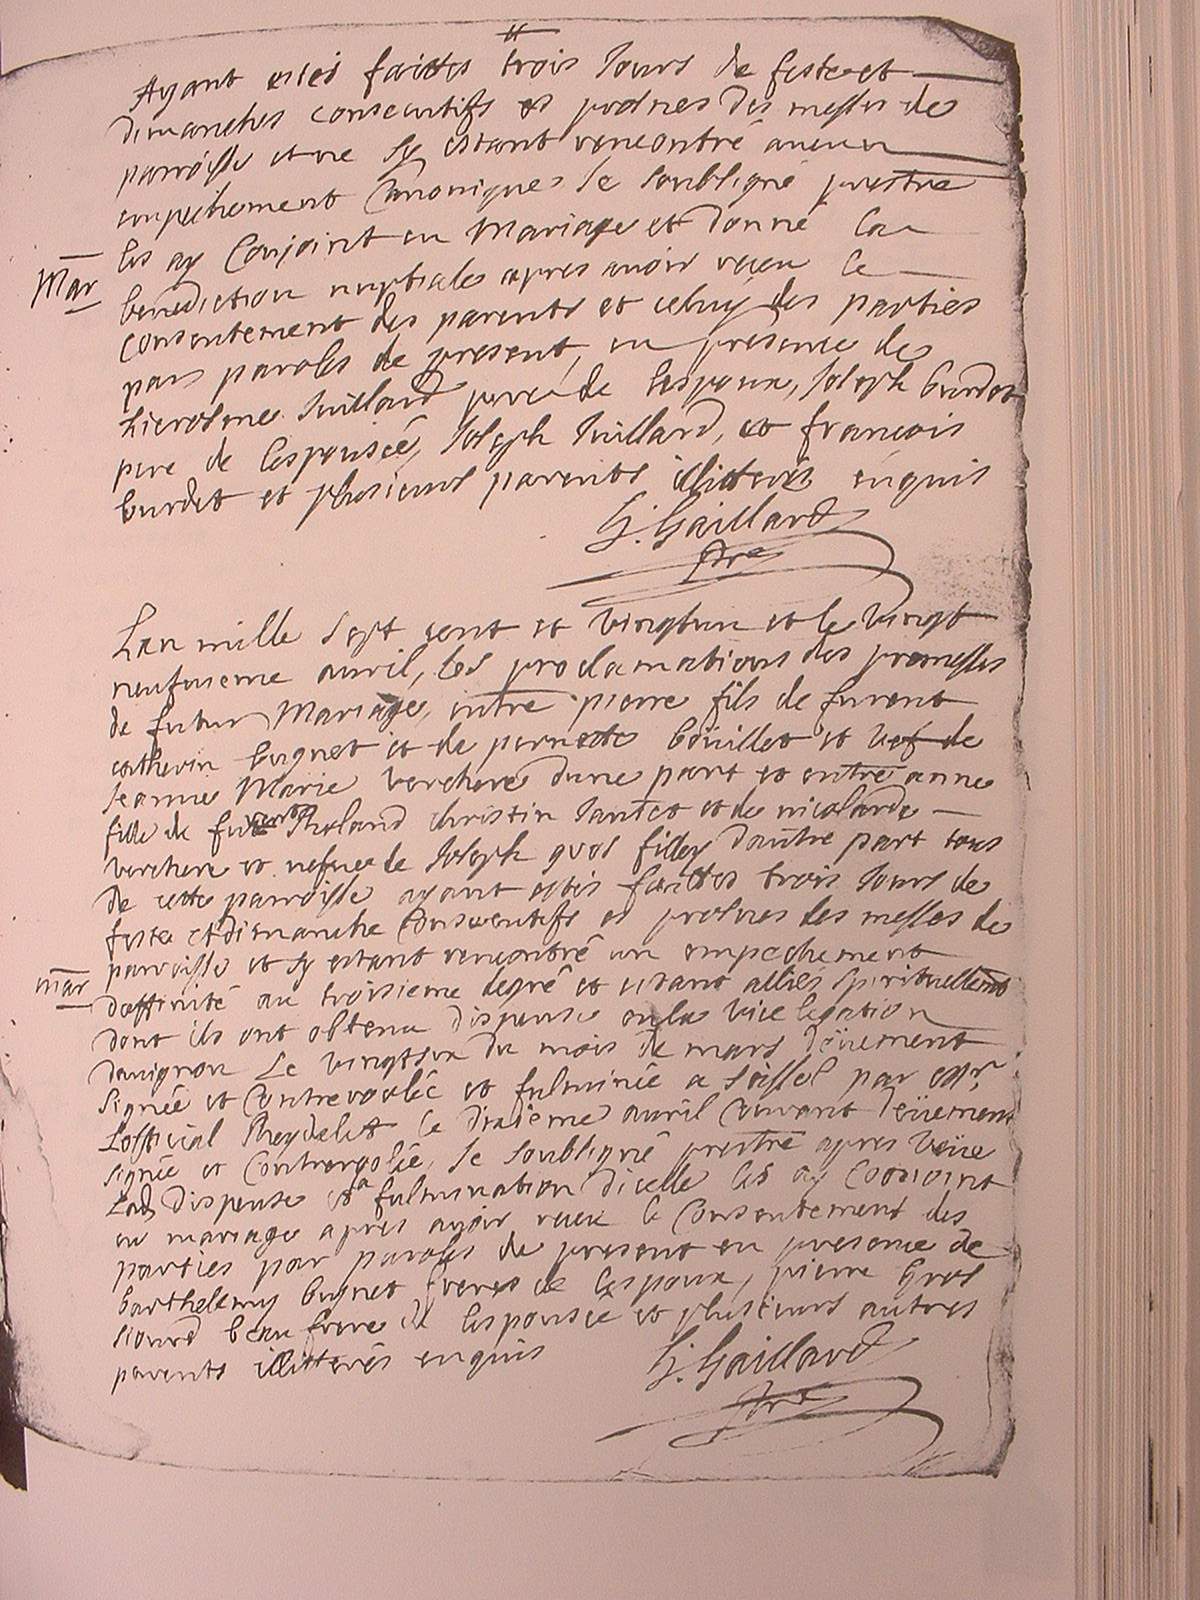 Ayant estés faittes trois Jours de feste et
dimanches consecutifs es prosnes des messes de
parroisse et ne sy estant rencontré aucun
empechement Canonique Je soubsigné prestre
les ay Conjoint en Mariage et donné La
Mar
benediction nuptiale apres avoir receu le
consentement des parents et celuy des parties
par paroles de present en presence de
hierosme Juillard pere de lespoux, Joseph burdet
pere de lespousée, Joseph Juillard, et francois
burdet et plusieurs parents illitterés enquis
G. Gaillard
ptre
Lan mille Sept cent et vingtun et le vingt
neufvieme avril, les proclamations des promesses
de futur Mariage, entre pierre fils de furent
cathevin bugnet et de pernette boüillet et vef de
Jeanne Marie verchere dune part et entre anne
fille de Roland christin Jantet et de nicolarde
verchere et vefve de Joseph gros filley dautre part tous
de cette parroisse ayant estés faittes trois Jours de
feste et dimanche Consecutifs es prosnes des messes de
mar
parroisse et sy estant rencontré un empechement
daffinité au troisieme degré et estant alliés spirituellement
dont ils ont obtenu dispense de la vice legation
davignon Le vingtsix du mois de mars deüement
signée et Controrolée et fulminée a seissel par Mr.
Lofficial Reydelet le dixieme avril Courant deüement
signée et Controrolée, Je soubsigné prestre apres veüe
Lad dispense et la fulmination dicelle les ay Conjoint
en mariage apres avoir receu le Consentement des
parties par paroles de present en presence de
barthelemy bugnet frere de lespoux, pierre gros
beau frere de lespousée et plusieurs autres
parents illitterés enquis
G. Gaillard
ptre